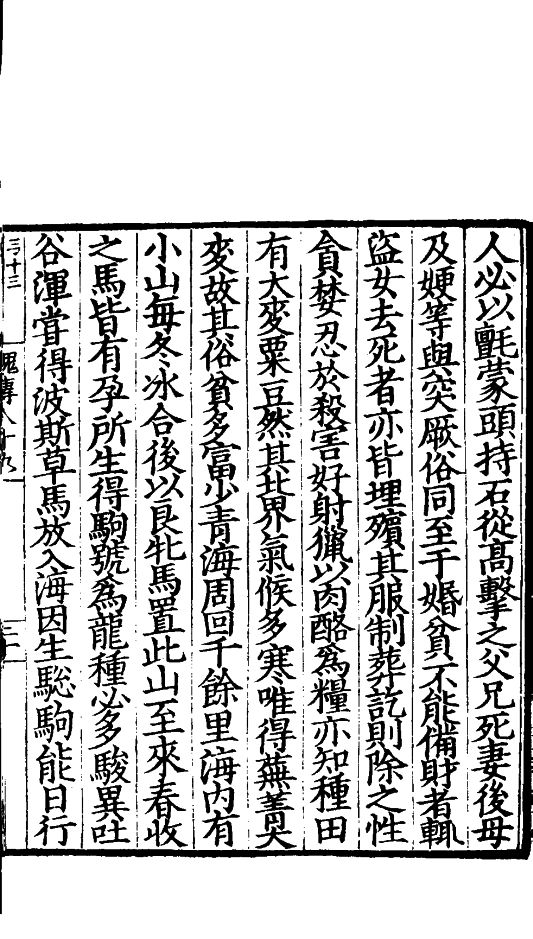 人必以氈蒙頭持石從高擊之父兄死妻後母
及㛐等與突厥俗同至于婚貧不能備財者輒
盜女去死者亦皆埋殯其服制葬訖則除之性
貪婪忍於殺害好射獵以肉酪爲糧亦知種田
有大麥粟豆然其北界氣候多寒唯得蕪菁大
麥故其俗貧多富少青海周回千餘里海内有
小山每冬冰合後以良牝馬置此山至來春收
之馬皆有孕所生得駒號爲龍種必多駿異吐
谷渾甞得波斯草馬放入海因生驄駒能日行